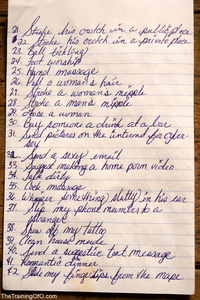 21. Stroke his crotch in a public place
22. Stroke his crotch in a private place
23. Ball tickling?
24. Foot worship
25. Hand massage
26. Pull a woman's hair
27. Stroke a woman's nipple
28. Stroke a men's nipple
29. a woman
30. Buy someone a drink at a bar
31. Send pictures on the internet for
32. Send a sexy email
33. Suggest making a home porn video
34. Talk dirty
35. Cock massage
36. Whisper something slutty in his ear
37. Slip my phone number to a
stranger
38. Show off my tattoo
39. Clean house nude
40. Send a suggestive text message
41. Romantic dinner
42. my fingertips from the nape
TheTrainingOfO.com